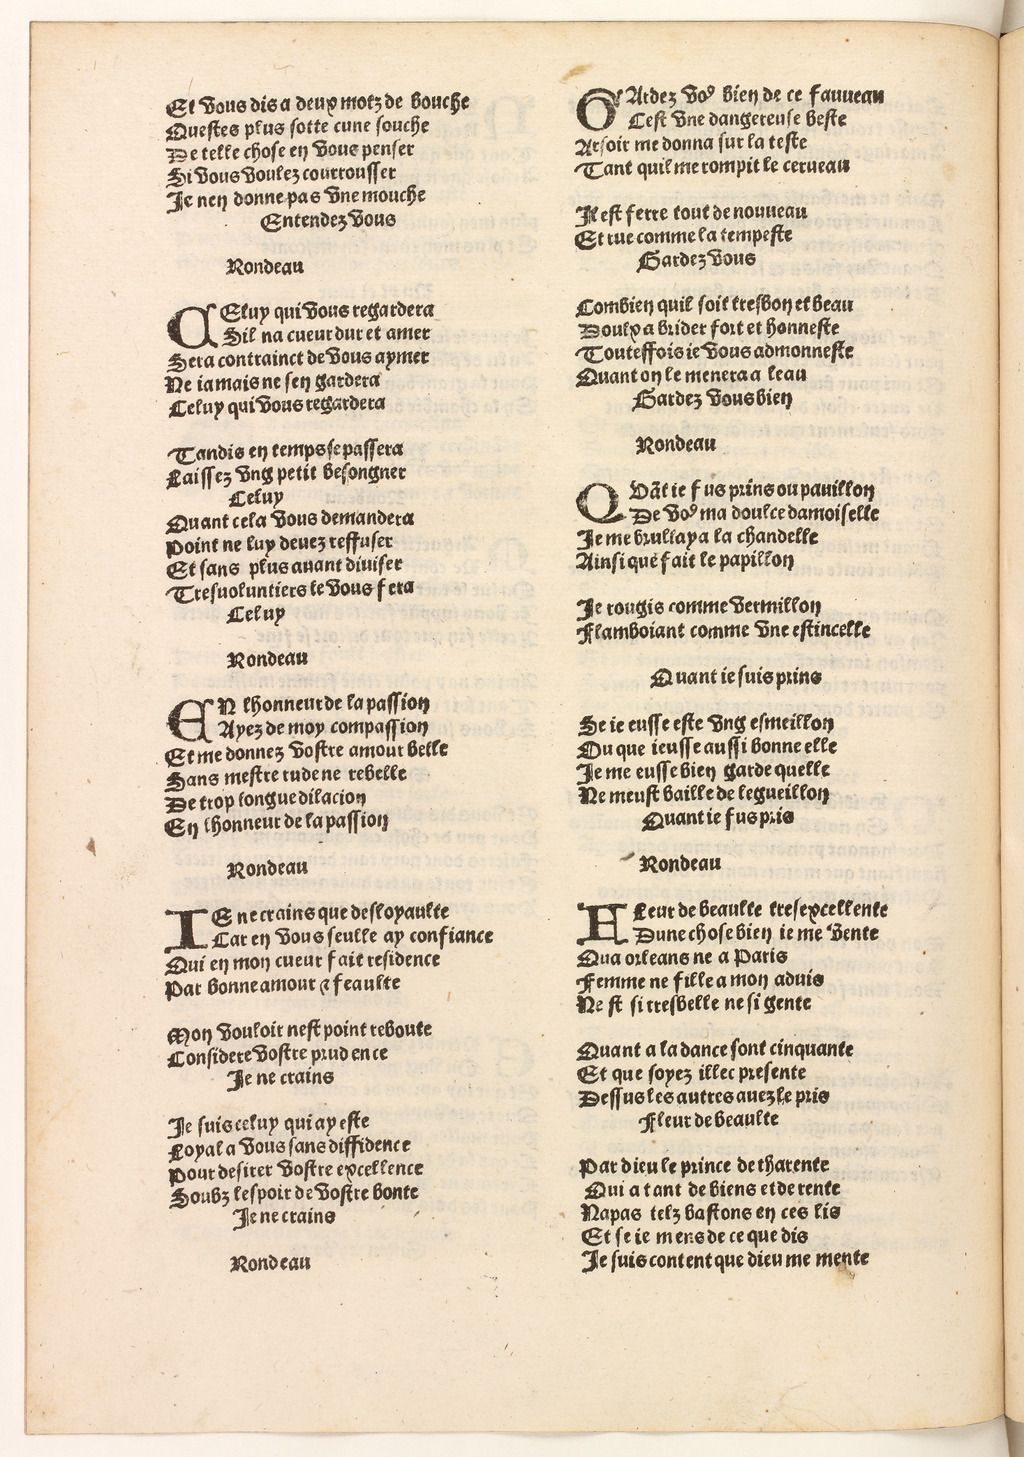 Et vous dis a deux motz de bouche
Questes plus sotte cune souche
De telle chose en vous penser
Si vous voulez courrousser
Je nen donne pas vne mouche
Entendez vous
Rondeau
CEluy qui vous regardera
Sil na cueur dur et amer
Sera contrainct de vous aymer
Ne iamais ne sen gardera
Celuy qui vous regardera
Tandis en temps se passera
Laissez vng petit besongner
Celuy
Quant cela vous demandera
Point ne luy deuez reffuser
Et sans plus auant diuiser
Tresuoluntiers le vous fera
Celuy
Rondeau
EN lhonneur de la passion
Ayez de moy compassion
Et me donnez vostre amour belle
Sans mestre rude ne rebelle
De trop longue dilacion
En lhonneur de la passion
Rondeau
IE ne crains que desloyaulte
Car en vous seulle ay confiance
Qui en mon cueur fait residence
Par bonne amour & feaulte
Mon vouloir nest point reboute
Considere vostre prudence
Je ne crains
Je suis celuy qui ay este
Loyal a vous sans diffidence
Pour desirer vostre excellence
Soubz lespoir de vostre bonte
Je ne crains
Rondeau
GArdez voꝰ bien de ce fauueau
Cest vne dangereuse beste
Arsoir me donna sur la teste
Tant quil me rompit le cerueau
Il est ferre tout de nouueau
Et rue comme la tempeste
Gardez vous
Combien quil soit tresbon et beau
Doulx a brider fort et honneste
Touteffois ie vous admonneste
Quant on le menera a leau
Gardez vous bien
Rondeau
QVãt ie fus prins ou pauillon
De voꝰ ma doulce damoiselle
Je me brullay a la chandelle
Ainsi que fait le papillon
Je rougis comme vermillon
Flamboiant comme vne estincelle
Quant ie suis prins
Se ie eusse este vng esmeillon
Ou que ieusse aussi bonne elle
Je me eusse bien garde quelle
Ne meust baille de legueillon
Quant ie fus pris
Rondeau
FLeur de beaulte tresexcellente
Dune chose bien ie me vente
Qua orleans ne a Paris
Femme ne fille a mon aduis
Ne st si tresbelle ne si gente
Quant a la dance sont cinquante
Et que soyez illec presente
Dessus les autres auez le pris
Fleur de beaulte
Par dieu le prince de tharente
Qui a tant de biens et de rente
Napas telz bastons en ces lis
Et se ie mens de ce que dis
Je suis content que dieu me mente